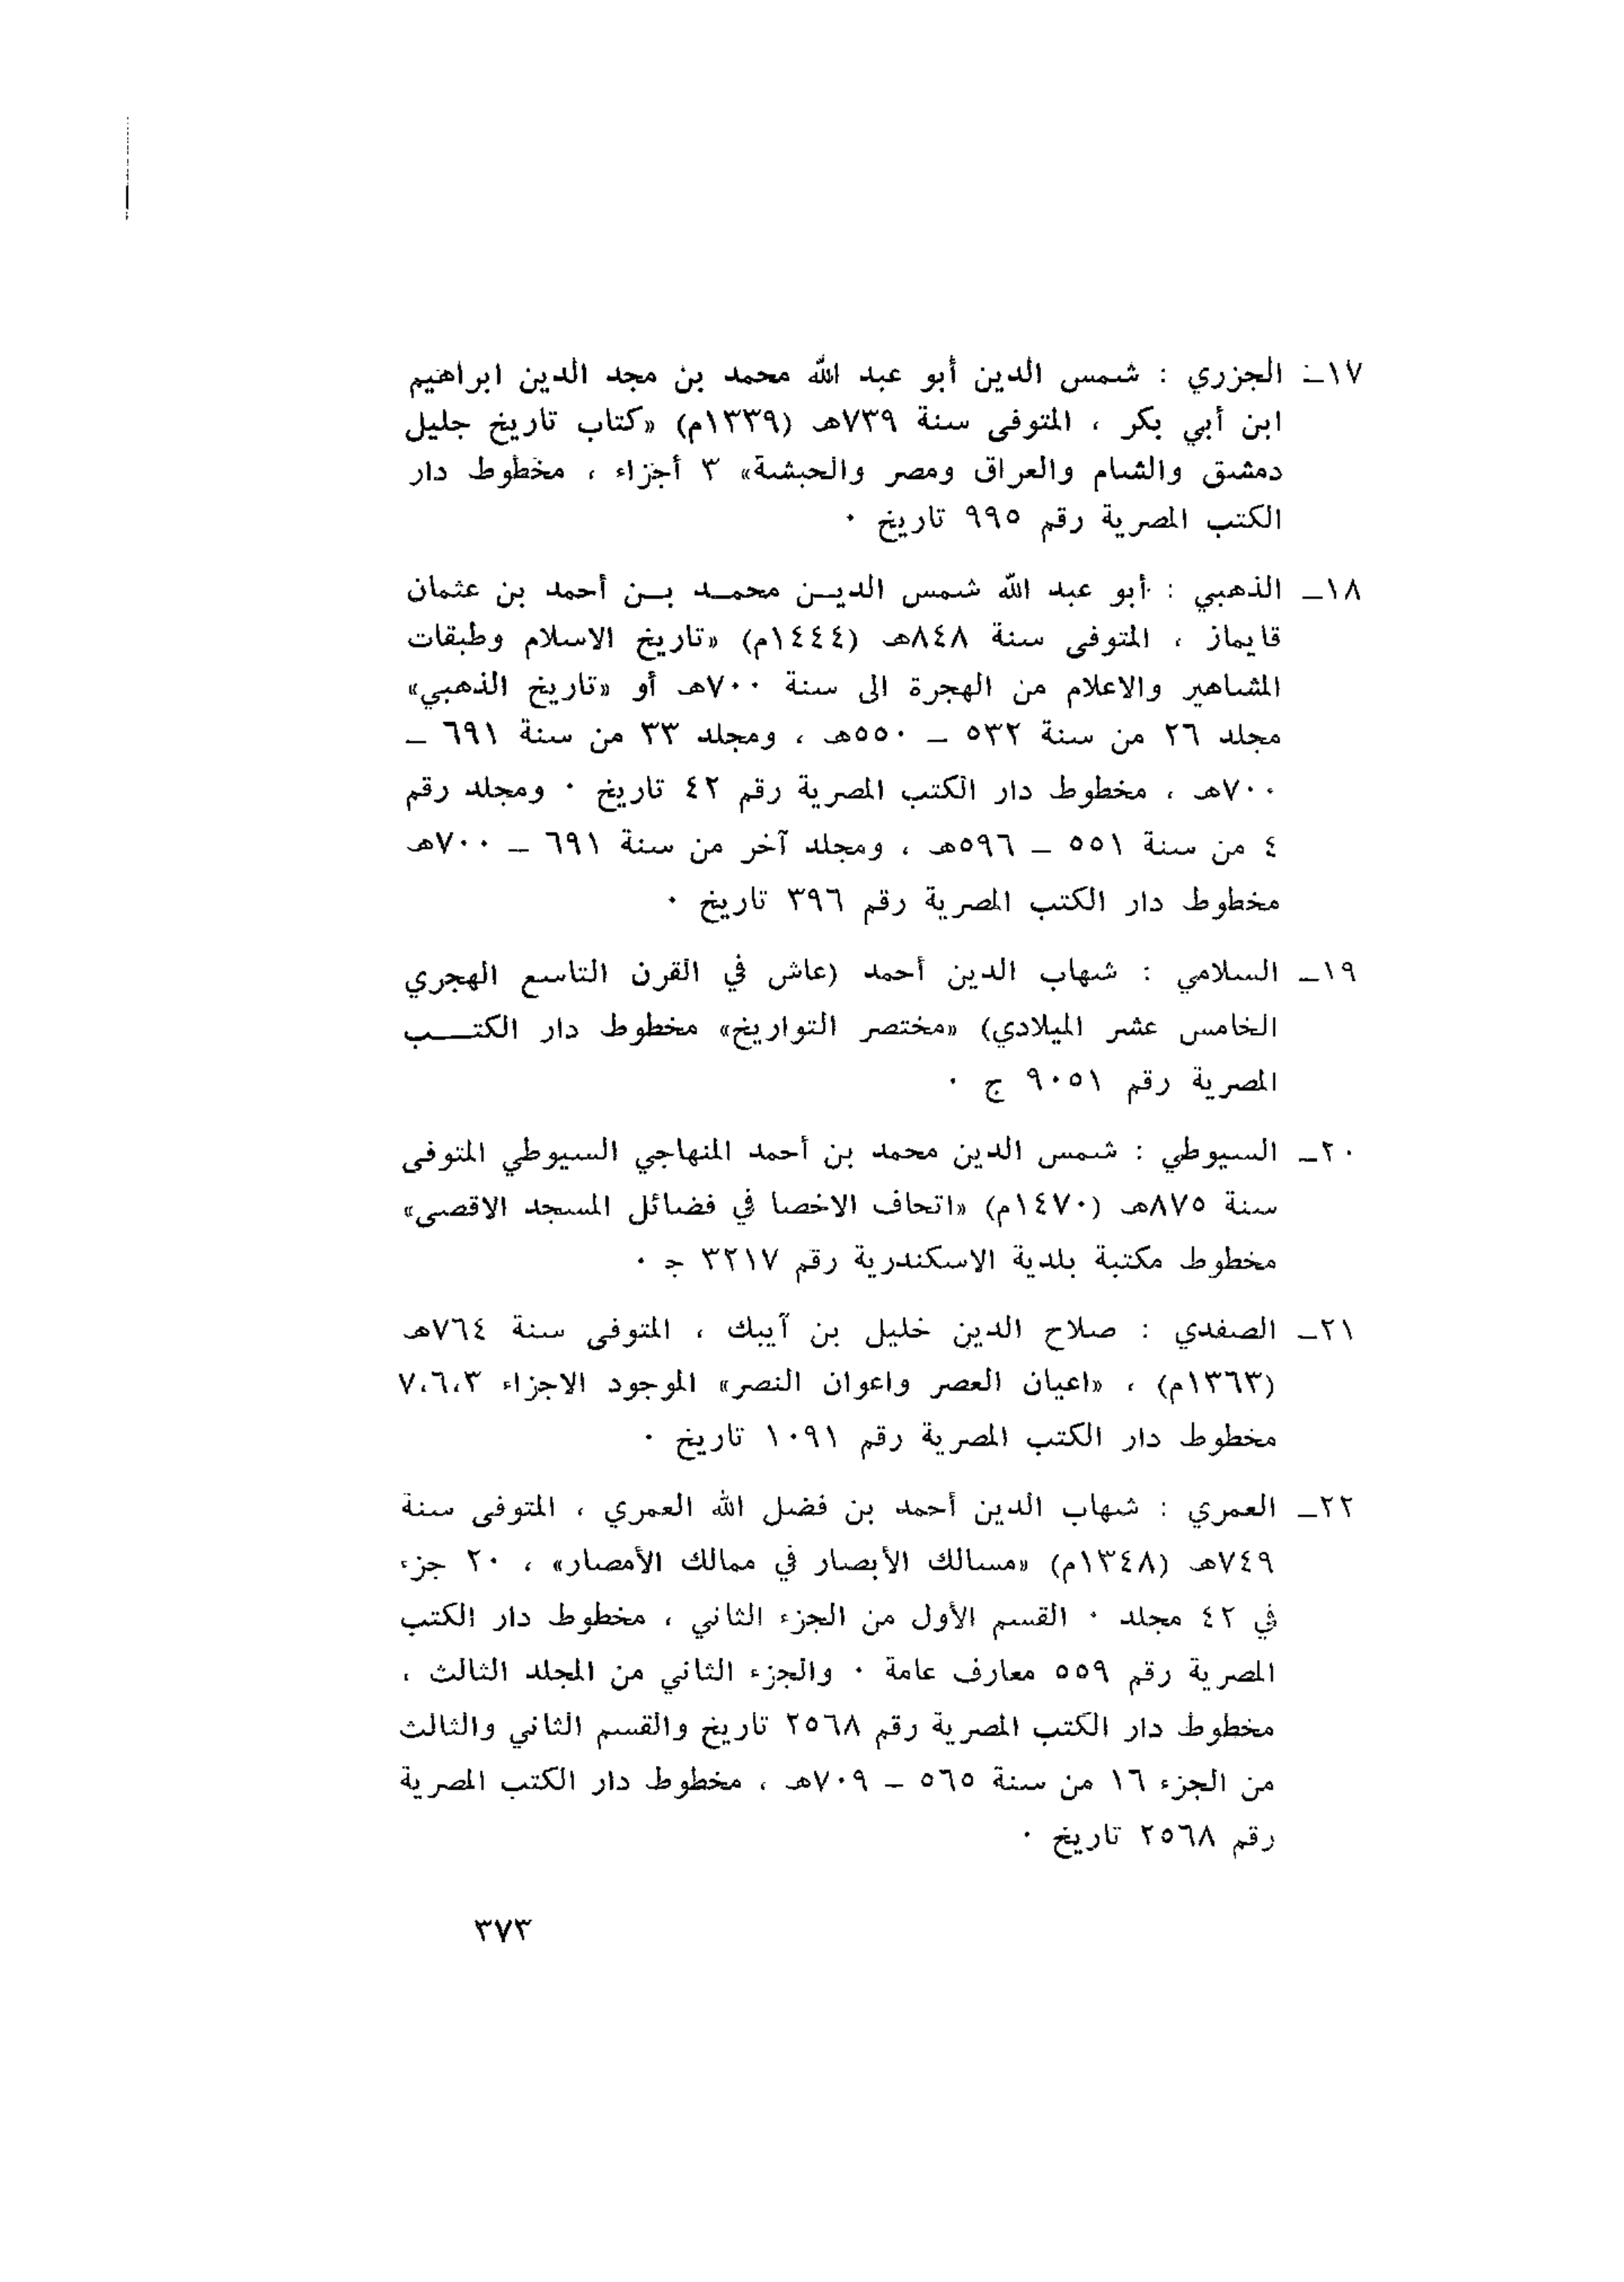 ١٧ـ الجزري : شمس الدين أبو عبد الله محمد بن مجد الدين ابراهيم
ابن أبي بكر ، المتوفى سنة ٧٣٩هـ (١٣٣٩م) «كتاب تاريخ جليل
دمشق والشام والعراق ومصر والحبشة» ٣ أجزاء ، مخطوط دار
الكتب المصرية رقم ٩٩٥ تاريخ ٠
١٨ـ الذهبي : أبو عبد الله شمس الديـن محمـد بـن أحمد بن عثمان
قايماز ، المتوفى سنة ٨٤٨هـ (١٤٤٤م) «تاريخ الاسلام وطبقات
المشاهير والاعلام من الهجرة الى سنة ٧٠٠هـ أو «تاريخ الذهبي»
مجلد ٢٦ من سنة ٥٣٢ ـ ٥٥٠هـ ، ومجلد ٣٣ من سنة ٦٩١ ـ
٧٠٠هـ ، مخطوط دار الكتب المصرية رقم ٤٢ تاريخ ٠ ومجلد رقم
٤ من سنة ٥٥١ ـ ٥٩٦هـ ، ومجلد آخر من سنة ٦٩١ ـ ٧٠٠هـ
مخطوط دار الكتب المصرية رقم ٣٩٦ تاريخ ٠
١٩ـ السلامي : شهاب الدين أحمد (عاش في القرن التاسع الهجري
الخامس عشر الميلادي) «مختصر التواريخ» مخطوط دار الكتـــب
المصرية رقم ٩٠٥١ ج ٠
٢٠ـ السيوطي : شمس الدين محمد بن أحمد المنهاجي السيوطي المتوفى
سنة ٨٧٥هـ (١٤٧٠م) «اتحاف الاخصا في فضائل المسجد الاقصى»
مخطوط مكتبة بلدية الاسكندرية رقم ٣٢١٧ جـ ٠
٢١ـ الصفدي : صلاح الدين خليل بن آيبك ، المتوفى سنة ٧٦٤هـ
(١٣٦٣م) ، «اعيان العصر واعوان النصر» الموجود الاجزاء ٧،٦،٣
مخطوط دار الكتب المصرية رقم ١٠٩١ تاريخ ٠
٢٢ـ العمري : شهاب الدين أحمد بن فضل الله العمري ، المتوفى سنة
٧٤٩هـ (١٣٤٨م) «مسالك الأبصار في ممالك الأمصار» ، ٢٠ جزء
في ٤٢ مجلد ٠ القسم الأول من الجزء الثاني ، مخطوط دار الكتب
المصرية رقم ٥٥٩ معارف عامة ٠ والجزء الثاني من المجلد الثالث ،
مخطوط دار الكتب المصرية رقم ٢٥٦٨ تاريخ والقسم الثاني والثالث
من الجزء ١٦ من سنة ٥٦٥ ـ ٧٠٩هـ ، مخطوط دار الكتب المصرية
رقم ٢٥٦٨ تاريخ ٠
٣٧٣